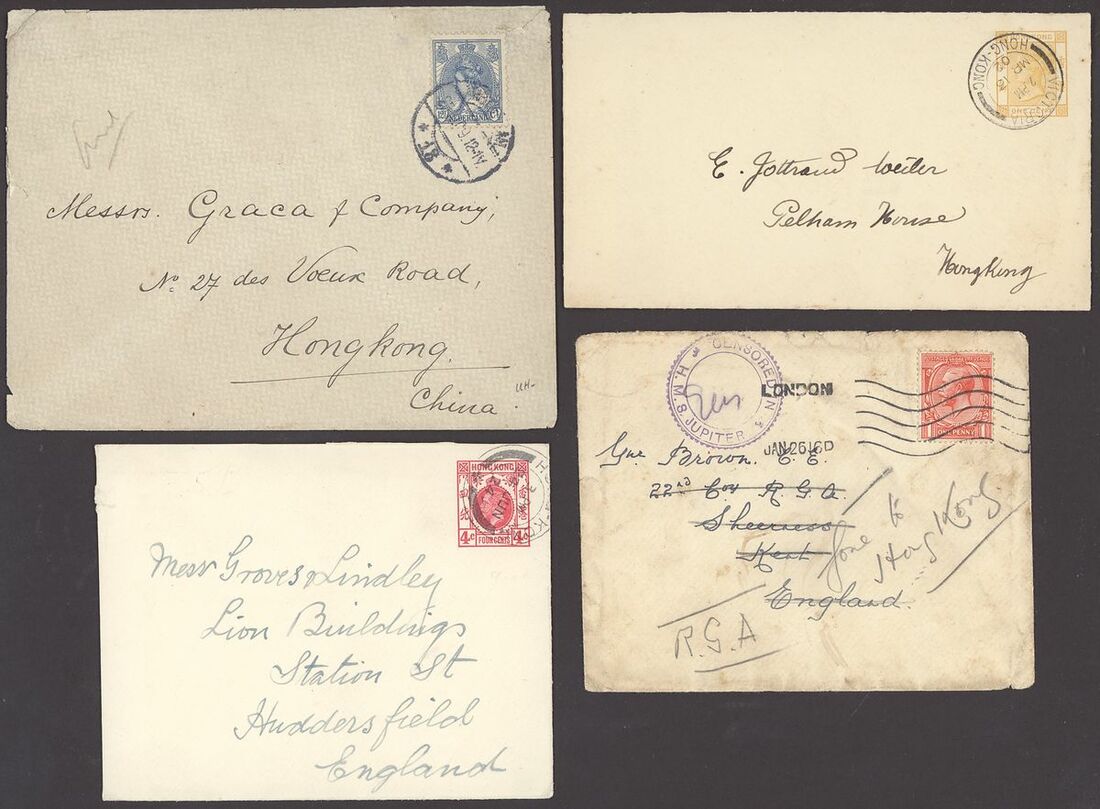 NEDERLAND
Messrs. Graca & Company,
No. 27 des Voeux Road,
Hongkong.
China
VICTORIA
HONG-KONG
2 PM
MR
02
E. Jottrand Weiler
Pelham House
HongKong
HONG KONG
4c FOUR CENTS 4c
Messr Groves & Lindley
Lion Buildings
Station St
Huddersfield
England
CENSORED IN
H.M.S. JUPITER
LONDON
JAN 26 16 D
POSTAGE REVENUE
1 ONE PENNY 1
Gnr Brown. C. E.
22nd Coy R.G.A.
Sheerness
Kent
England.
Gone to
Hong Kong
R.G.A